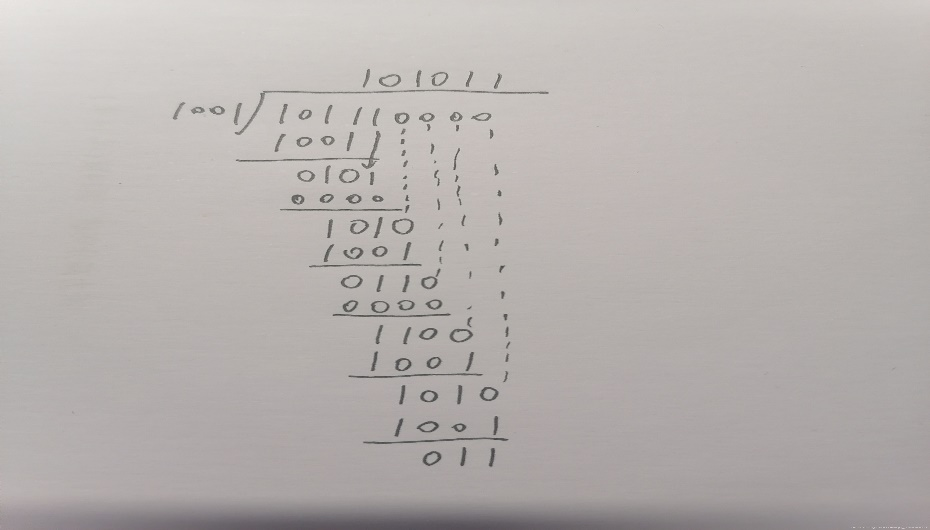 101011
1001)101110000
1001
0101
0000
1010
1001
0110
0000
1100
1001
1010
1001
011